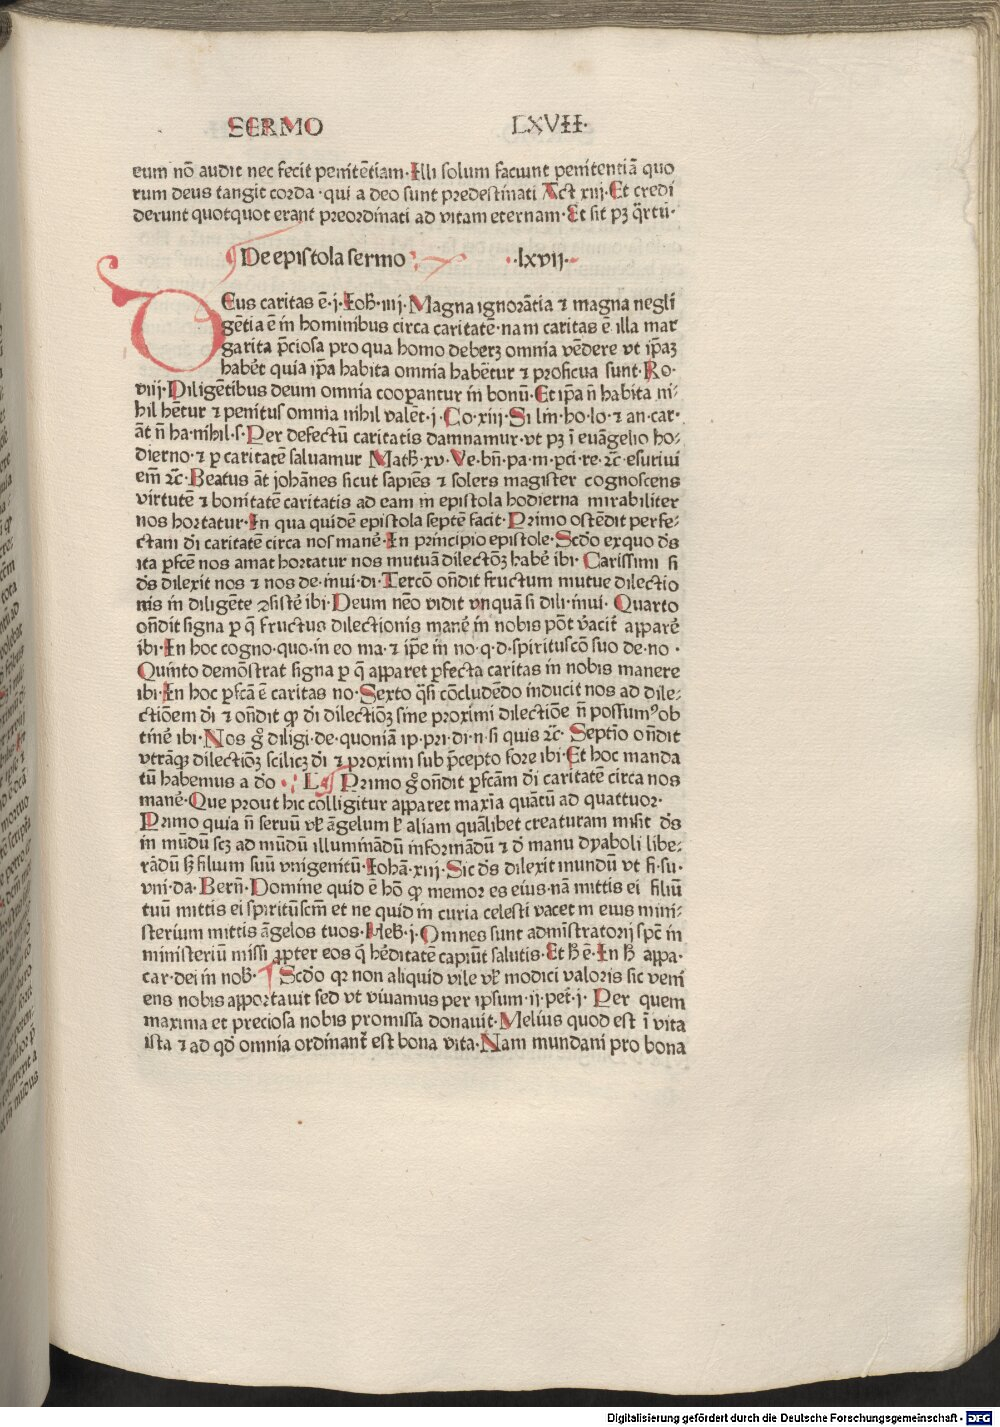 SERMO LXVII·
eum nō audit nec fecit penitētiam·Illi solum faciunt penitentiā quo
rum deus tangit corda·qui a deo sunt predestinati Act xiij·Et credi
derunt quotquot erant preordinati ad vitam eternam·Et sit pꝫ q̄rtū·
De epistola sermo ·lxvij·
DEus caritas ē·j·Ioh̄·iiij·Magna ignorātia ⁊ magna negli
gētia ē in hominibus circa caritatē·nam caritas ē illa mar
garita p̄ciosa pro qua homo deberꝫ omnia vēdere vt ip̄aꝫ
habēt quia ip̄a habita omnia habētur ⁊ proficua sunt·Ro·
viij·Diligētibus deum omnia coopantur in bonū·Et ip̄a n̄ habita ni⸗
hil hētur ⁊ penitus omnia nihil valēt·j·Co·xiij·Si lin̄·ho·lo·⁊ an·car·
āt n̄ ha·nihil·s·Per defectū caritatis damnamur·vt pꝫ ī euāgelio ho⸗
dierno·⁊ p caritatē saluamur Math̄·xv·Ve·bn̄·pa·m·pci·re·⁊c̄·esuriui
em̄ ⁊c̄·Beatus āt johānes sicut sapiēs ⁊ solers magister cognoscens
virtutē ⁊ bonitatē caritatis ad eam in epistola hodierna mirabiliter
nos hortatur·In qua quidē epistola septē facit·Primo ostēdit perfe⸗
ctam di caritatē circa nos manē·In principio epistole·Scdo exquo ds̄
ita pfcē nos amat hortatur nos mutuā dilectōꝫ habē ibi·Carissimi si
ds̄ dilexit nos ⁊ nos de·inui·di·Tercō on̄dit fructum mutue dilectio
nis in diligēte ꝯsistē ibi·Deum nēo vidit vnquā si dili·inui· Quarto
on̄dit signa p q̄ fructus dilectionis manē in nobis pōt vacit̄ apparē
ibi·In hoc cogno·quo·in eo ma·⁊ ip̄e in no·q·d·spirituscō suo de·no·
Quinto demōstrat signa p q̄ apparet pfecta caritas in nobis manere
ibi·In hoc pfcā ē caritas no·Sexto q̄si cōcludēdo inducit nos ad dile⸗
ctiōem di ⁊ on̄dit qp di dilectiōꝫ sine proximi dilectiōe n̄ possumꝰ ob
tinē ibi·Nos gͦ diligi·de·quoniā ip·pri·di·n·si quis ⁊c̄·Septīo on̄dit
vtrāqꝫ dilectiōꝫ scilicꝫ di ⁊ proximi sub p̄cepto fore ibi·Et hoc manda
tū habemus a do· Primo gͦ on̄dit pfcām di caritatē circa nos
manē·Que prout hic colligitur apparet maxīa quātū ad quattuor·
Primo quia n̄ seruū vł āgelum ł aliam quālibet creaturam misit ds̄
in mūdū scꝫ ad mūdū illuminādū informādū ⁊ d manu dyaboli libe⸗
rādū sꝫ filium suū vnigenitū·Iohā·xiij·Sic ds̄ dilexit mundū vt fi·su·
vni·da·Bern̄·Domine quid ē hō qp memor es eius·nā mittis ei filiū
tuū mittis ei spiritūscm̄ et ne quid in curia celesti vacet in eius mini⸗
sterium mittis āgelos tuos·Heb·j·Omnes sunt administratorij spc̄ in
ministeriū missi ꝓpter eos q̄ hēditatē capiūt salutis·Et h̄ ē·In h̄ appa·
car·dei in nob· Scdo qꝛ non aliquid vile vł modici valoris sic veni
ens nobis apportauit sed vt viuamus per ipsum·ij·pet·j· Per quem
maxima et preciosa nobis promissa donauit·Melius quod est ī vita
ista ⁊ ad qd omnia ordinant̄ est bona vita·Nam mundani pro bona
Digitalisierung gefördert durch die Deutsche Forschungsgemeinschaft - DFG